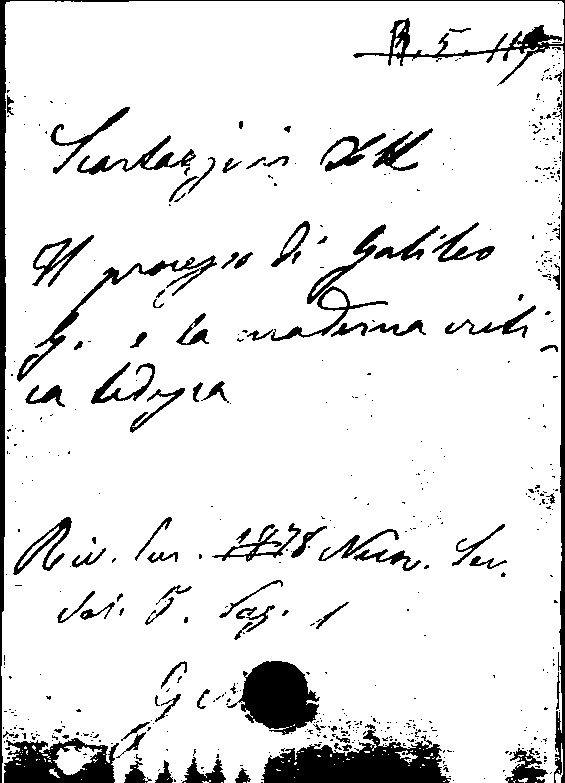 R. 5. 117
Scartazzini
Il processo di Galileo
G. e la moderna criti-
ca tedesca
Riv. Eur. 1878 Num. Ser.
Vol. 5. Pag. 1